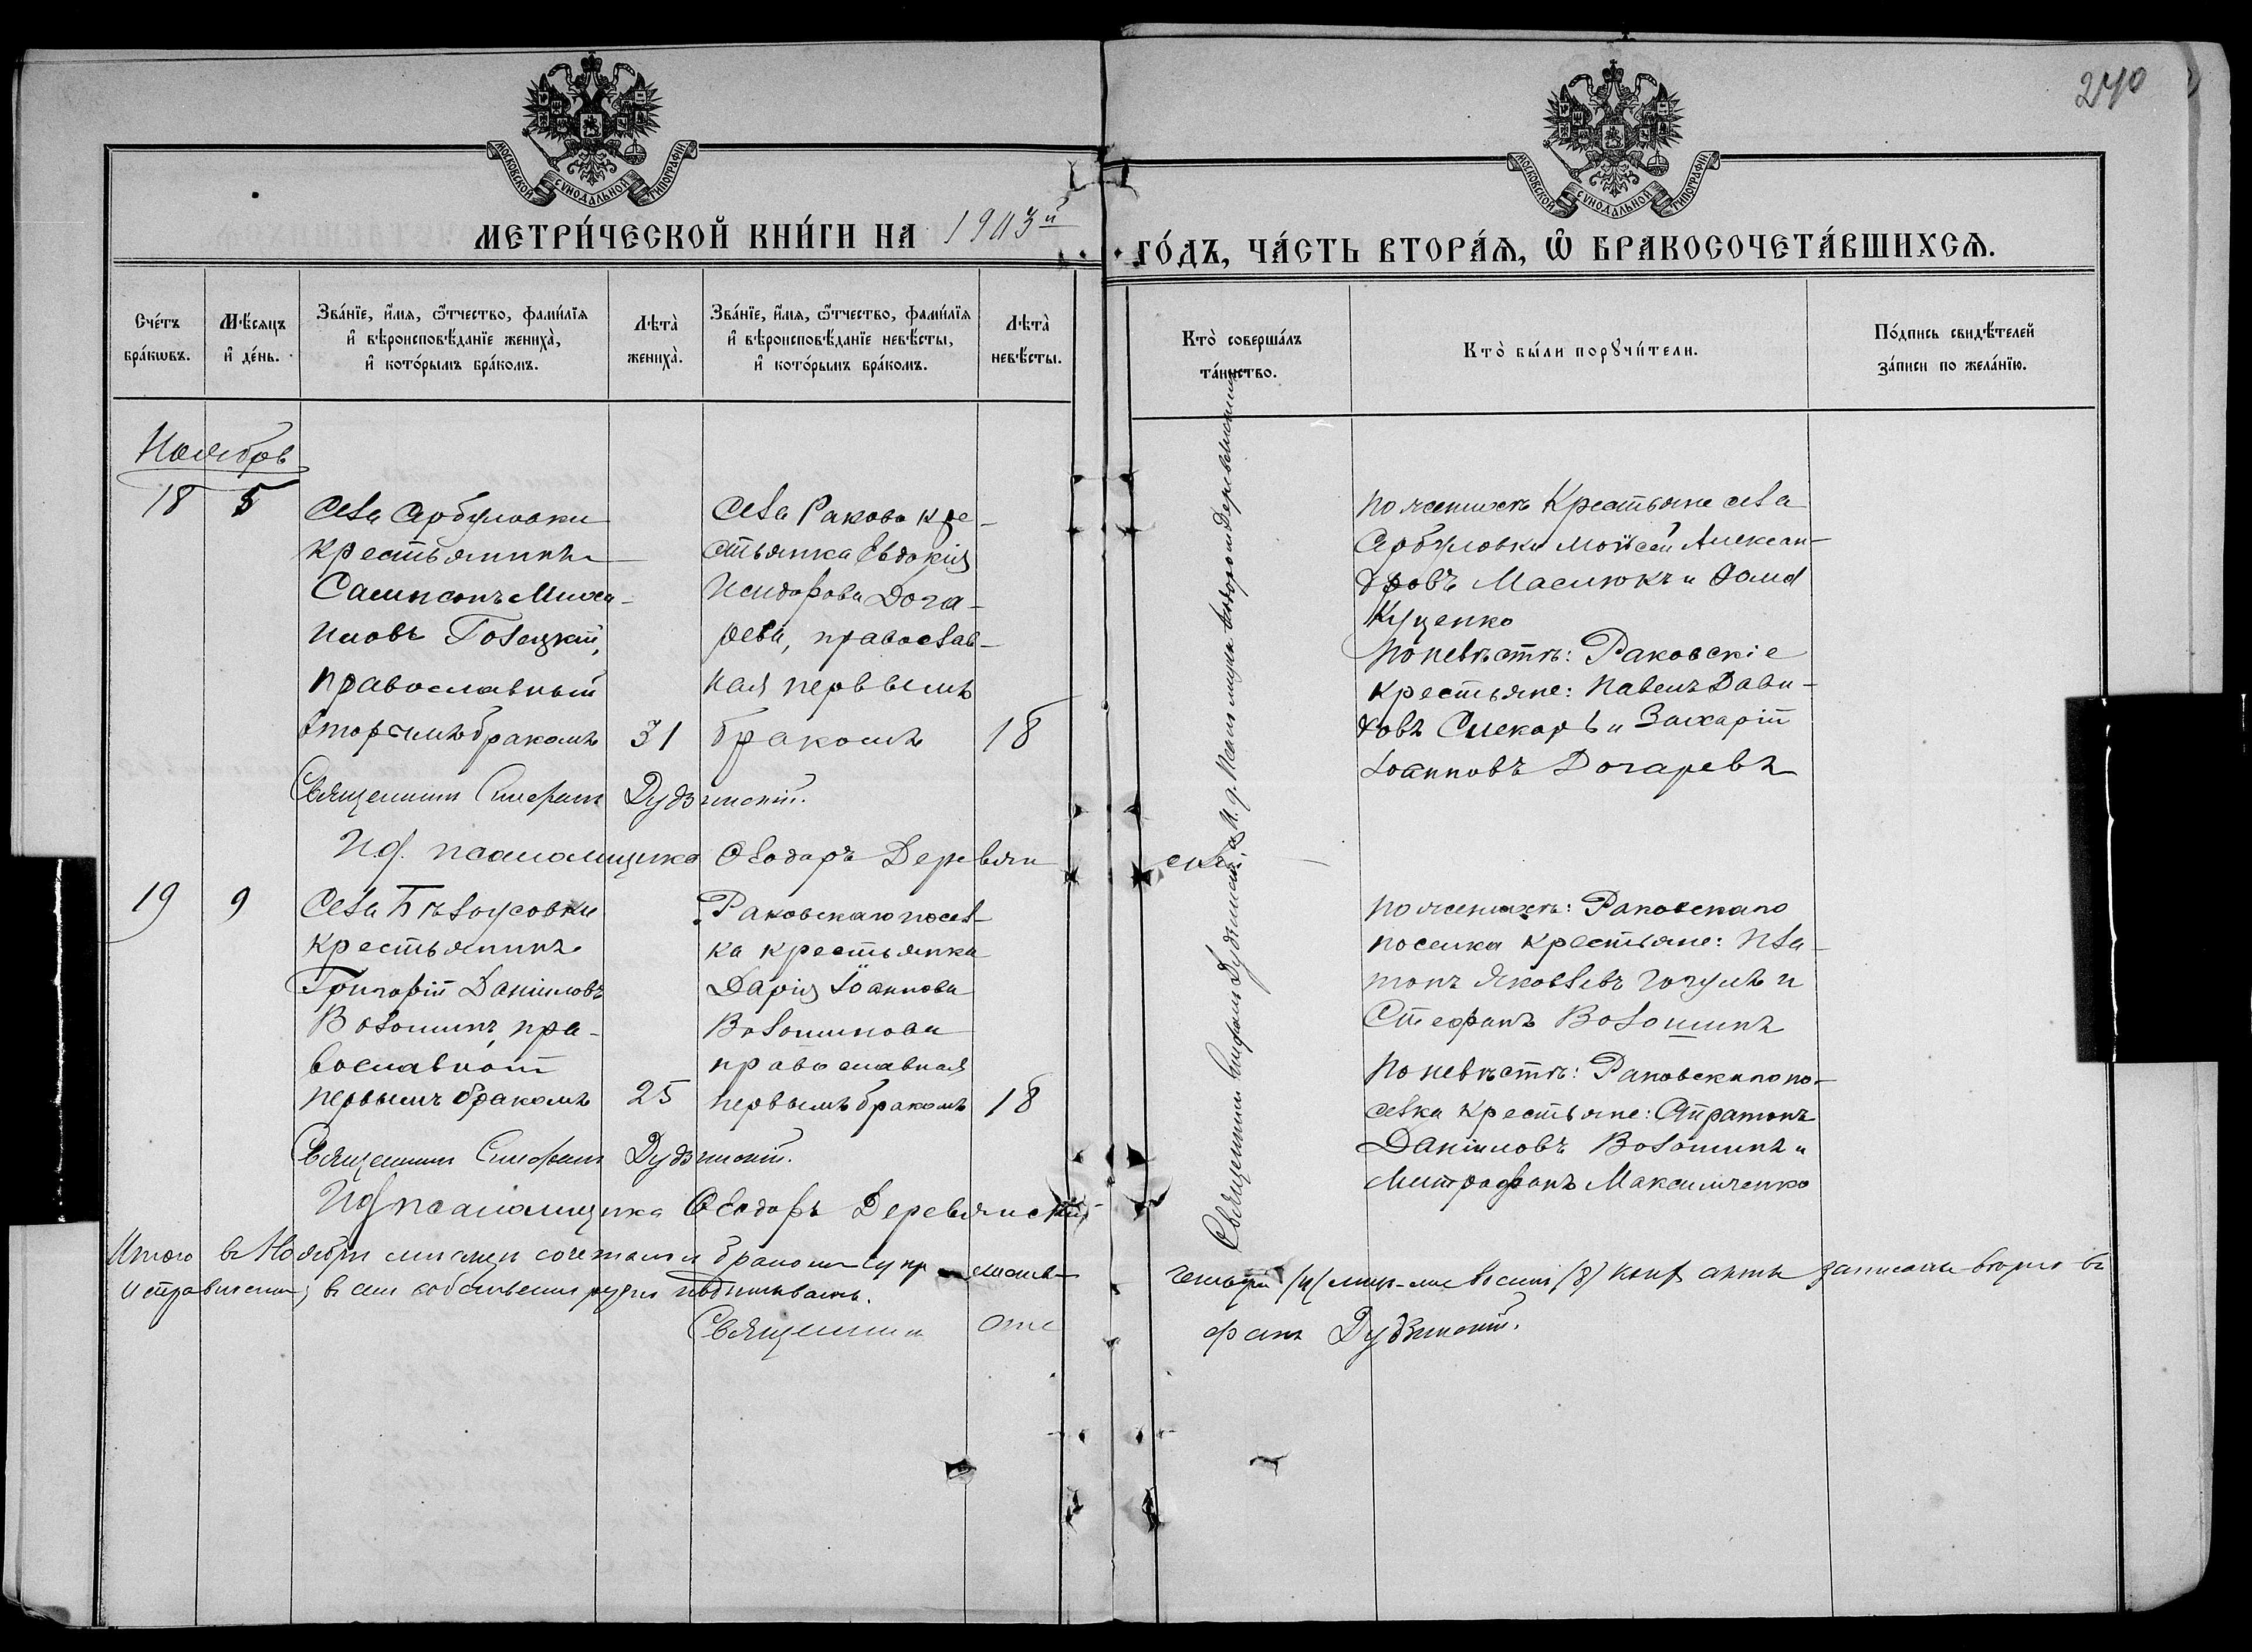 240
МОСКОВСКОЙ СѴНОДАЛЬНОЙ ТИПОГРАФІИ
МОСКОВСКОЙ СѴНОДАЛЬНОЙ ТИПОГРАФІИ
МЕТРИ́ЧЕСКОЙ КНИ́ГИ НА 1903й
ГО́ДЪ, ЧА́СТЬ ВТОРА́Ѧ, Ѽ БРАКОСОЧЕТА́ВШИХСѦ.
Сче́тъ бра́кѡвъ.
Мѣ́сяцъ и҆ де́нь.
Зва́нїе, и҆́мя, ѻ҆́тчество, фами́лїя и҆ вѣроисповѣ́данїе жениха̀, и҆ кото́рымъ бра́комъ.
Лѣта̀ жениха̀.
Зва́нїе, и҆́мя, ѻ҆́тчество, фами́лїя и҆ вѣроисповѣ́данїе невѣ́сты, и҆ кото́рымъ бра́комъ.
Лѣта̀ невѣ́сты.
Кто̀ соверша́лъ та́инство.
Кто̀ бы́ли порꙋчи́тели.
По́дпись свидѣ́телей за́писи по жела́нїю.
Ноябрь
18 5
Села Арбузовки
крестьянинъ
Сампсонъ Миха-
иловъ Голецкій,
православный
вторымъ бракомъ 31
Села Раково кре-
стьянка Евдокія
Исидорова Дога-
рева, православ-
ная первымъ
бракомъ 18
По женихѣ Крестьяне села
Моѵсей Алексан-
дровъ Маслюкъ и
Куценко
По невѣстѣ: Раковскіе
крестьяне: Павелъ Дави-
довъ и Захарій
Іоанновъ Догаревъ
Священникъ Стефанъ Дудзинскій.
И.д. псаломщика Ѳеодоръ Деревян
скій
19 9
Села Бѣлоусовки
крестьянинъ
Григорій Даніиловъ
Волошинъ, пра-
вославный
первымъ бракомъ 25
Раковскаго посел-
ка крестьянка
Дарія Іоаннова
Волошинова
православная
первымъ бракомъ 18
По женихѣ: Раковскаго
поселка крестьяне: Пла-
тонъ Яковлевъ и
Стефанъ Волошинъ
По невѣстѣ: Раковскаго по-
селка крестьяне:
Даніиловъ Волошинъ и
Митрофанъ Максимченко
Священникъ Стефанъ Дудзинскій.
И.д. псаломщика Ѳеодоръ Деревянскій
Священникъ Стефанъ Дудзинскій, и.д. псаломщика Ѳеодоръ Деревянскій
Итого в Ноябрѣ мѣсяцѣ бракомъ
четыре (4) восемь (8) акты записаны вѣрно въ
в чемъ собственноручно подписываюсь.
Священникъ Сте
фанъ Дудзинскій.